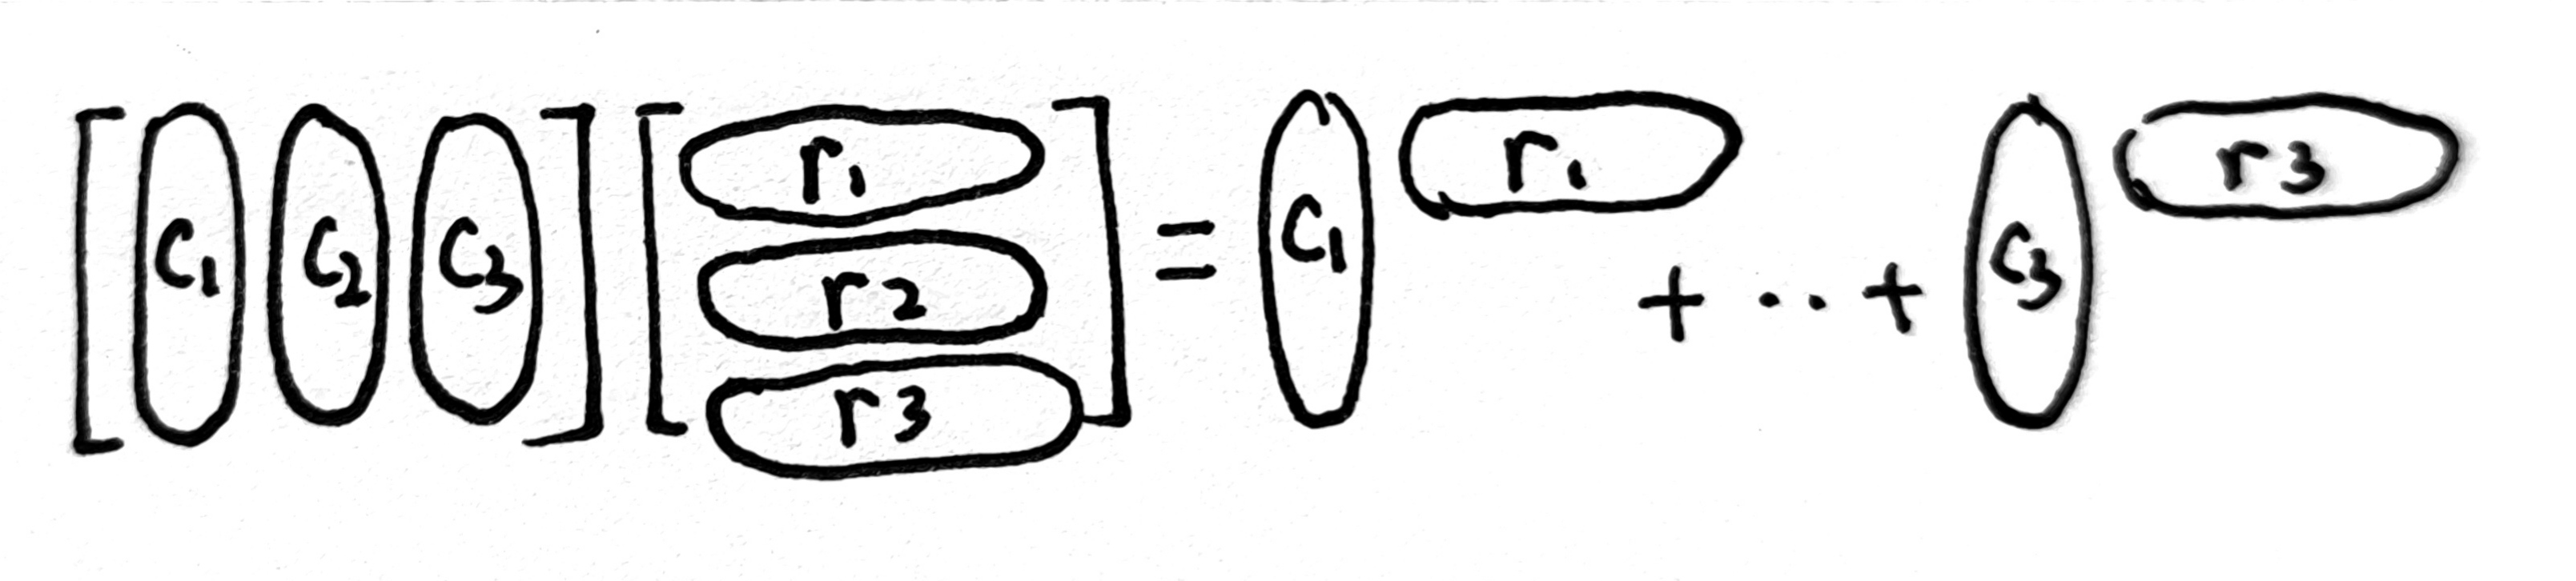 [C1 C2 C3] [r1 r2 r3] = C1 r1 + ·· + C3 r3